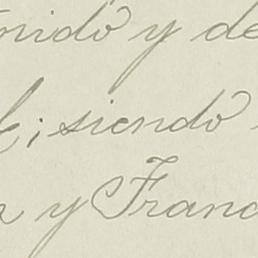 nido y de
; siendo
y Franc